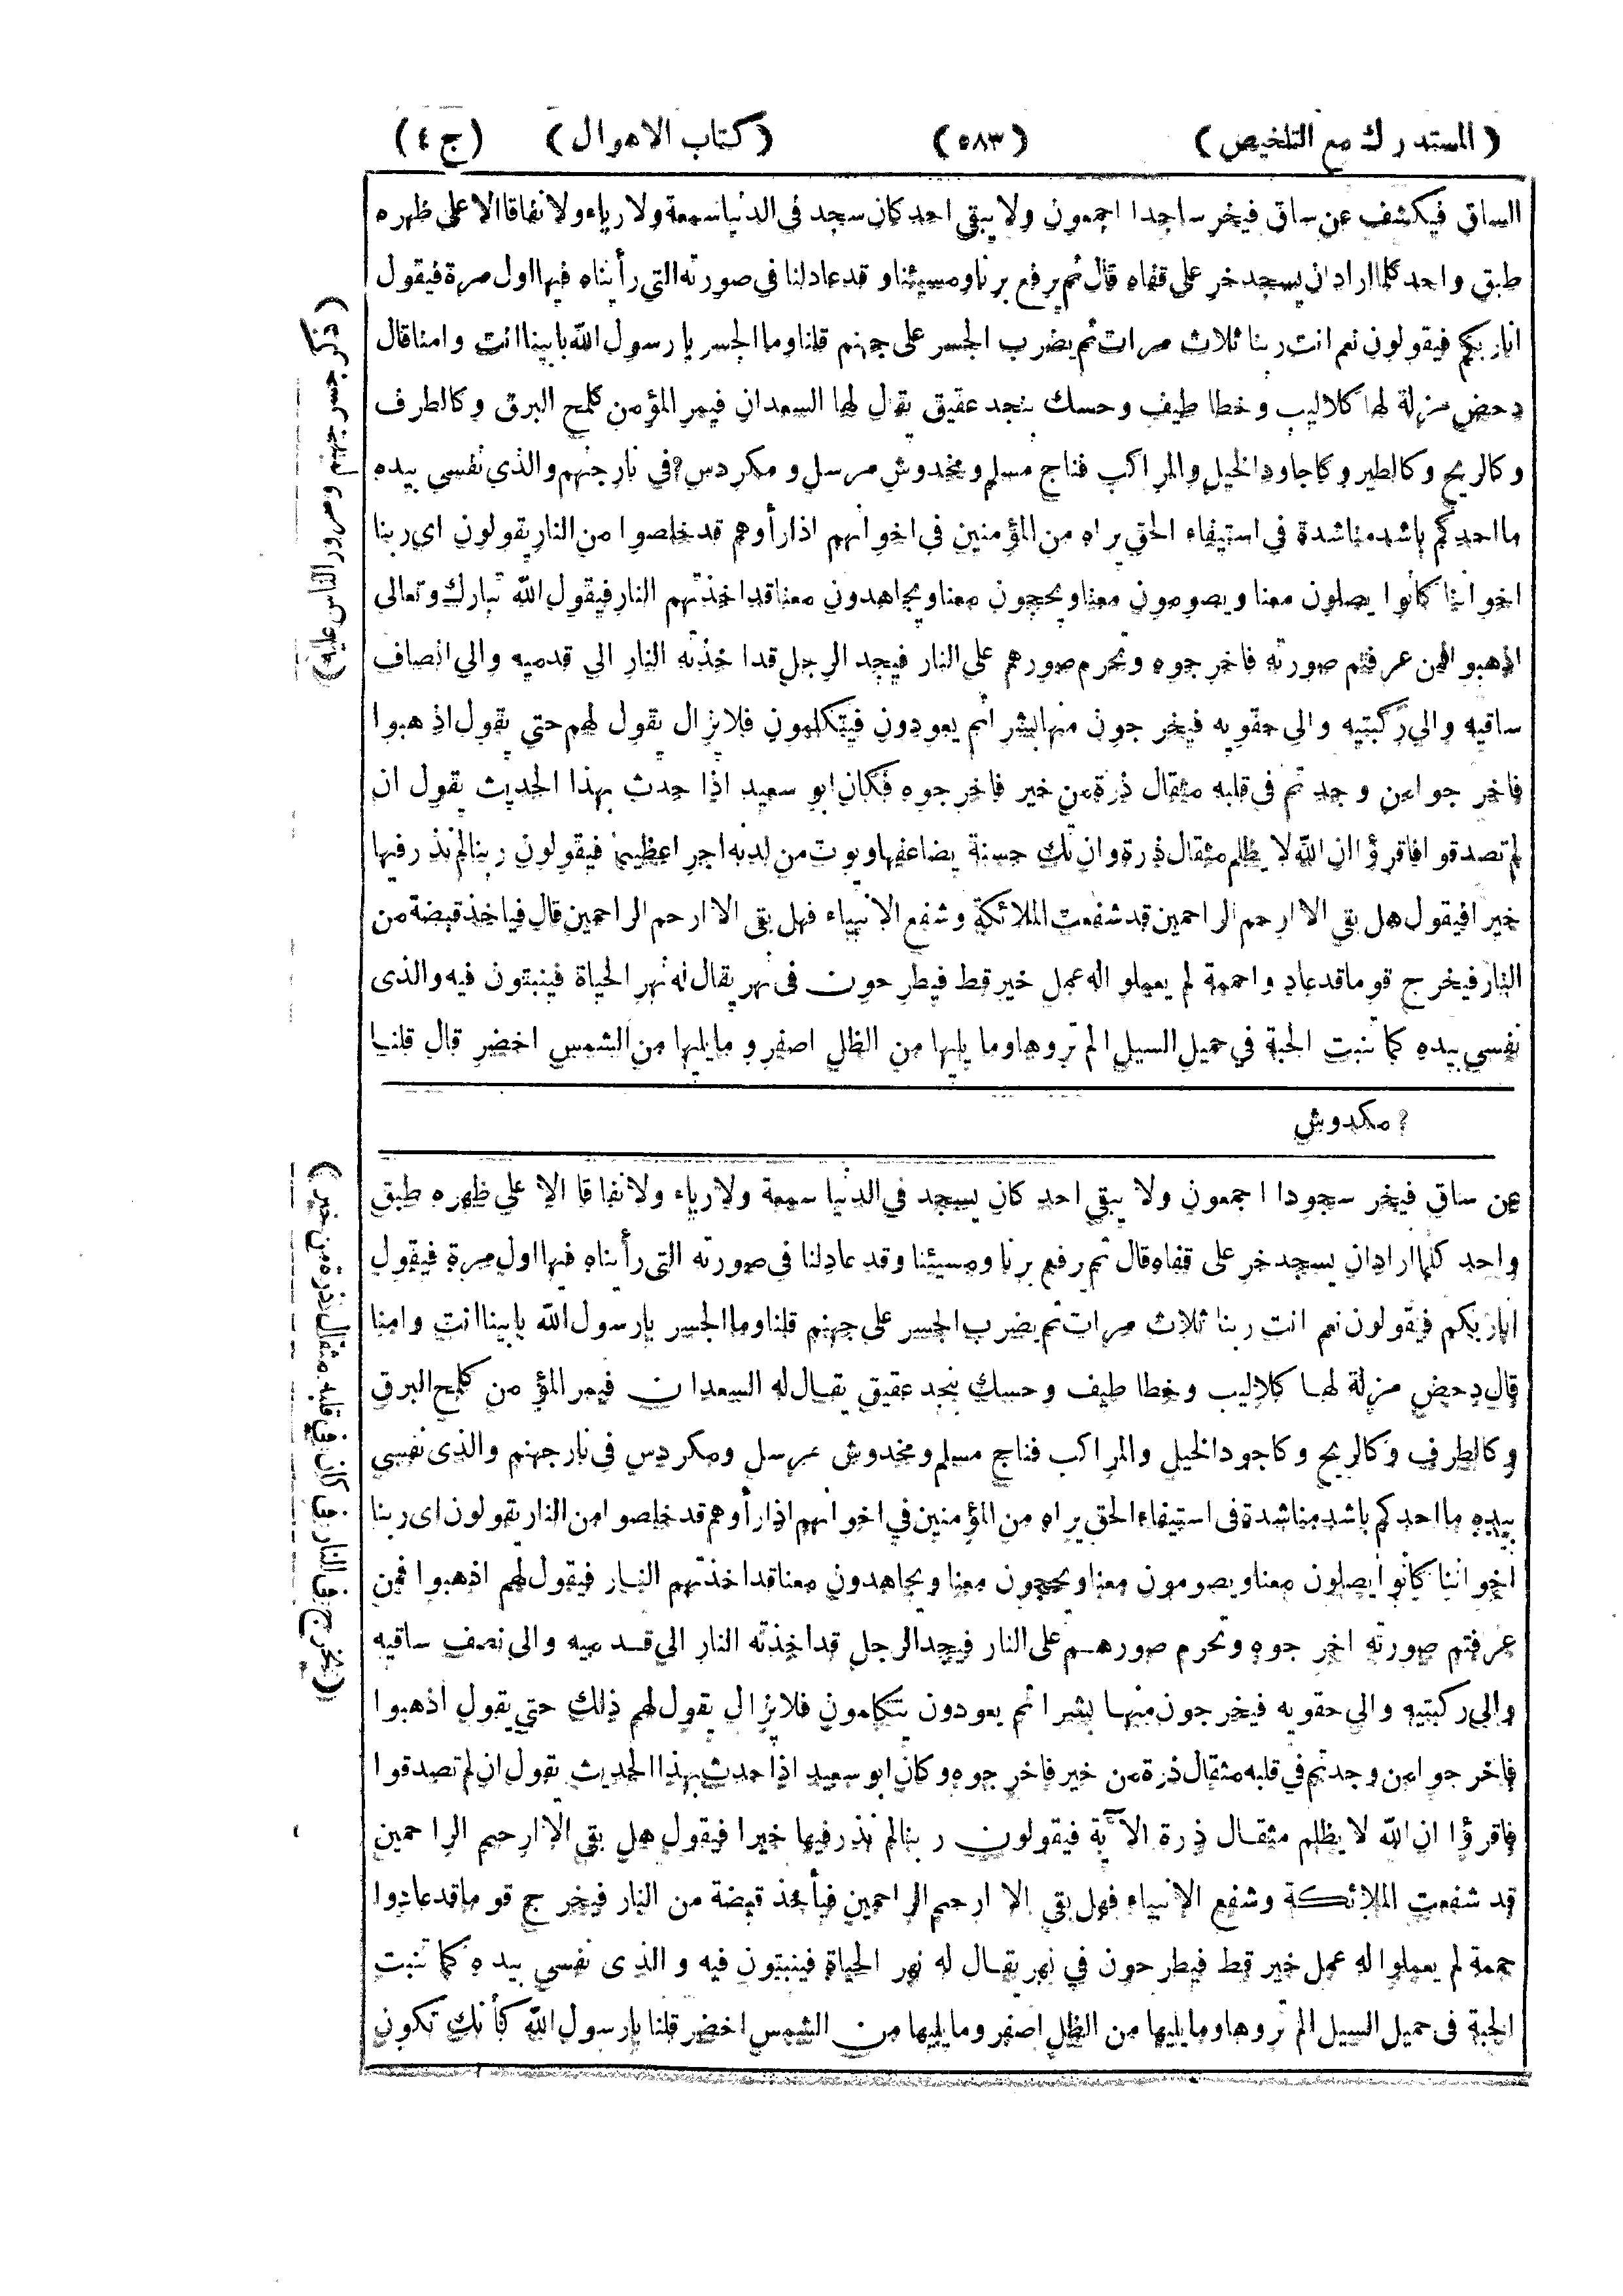 (المستدرك مع التلخيص) (٥٨٣) (كتاب الاهوال) (ج ٤)
الساق فيكشف عن ساق فيخر ساجدا اجمعون ولا يبقى احد كان سجد في الدنيا سمعة ولا رياء ولا نفاقا الا على ظهره
طبق واحد كلما اراد ان يسجد خر على قفاه قال ثم يرفع برنا ومسيئنا وقد عاد لنا في صورته التي رأيناه فيها اول مرة فيقول
انا ربكم فيقولون نعم انت ربنا ثلاث مرات ثم يضرب الجسر على جهنم قلنا وما الجسر يا رسول الله بابينا انت وامنا قال
دحض مزلة لها كلاليب وخطاطيف وحسك بنجد عقيق يقال لها السعدان فيمر المؤمن كلمح البرق وكالطرف
وكالريح وكالطير وكاجاود الخيل والمراكب فناج مسلم ومخدوش مرسل ومكردس؟ في نار جهنم والذي نفسي بيده
ما احدكم باشد مناشدة في استيفاء الحق يراه من المؤمنين في اخوانهم اذا رأوهم قد خلصوا من النار يقولون اي ربنا
اخواننا كانوا يصلون معنا ويصومون معنا ويحجون معنا ويجاهدون معنا قد اخذتهم النار فيقول الله تبارك وتعالى
اذهبوا فمن عرفتم صورته فاخرجوه وتحرم صورهم على النار فيجد الرجل قد اخذته النار الى قدميه والى انصاف
ساقيه والى ركبتيه والى حقويه فيخرجون منها بشرا ثم يعودون فيتكلمون فلا يزال يقول لهم حتى يقول اذهبوا
فاخرجوا من وجدتم في قلبه مثقال ذرة من خير فاخرجوه فكان ابو سعيد اذا حدث بهذا الحديث يقول ان
لم تصدقوا فاقرؤا ان الله لا يظلم مثقال ذرة وان تك حسنة يضاعفها ويوت من لدنه اجرا عظيما فيقولون ربنا لم نذر فيها
خيرا فيقول هل بقي الا ارحم الراحمين قد شفعت الملائكة وشفع الانبياء فهل بقى الا ارحم الراحمين قال فياخذ قبضة من
النار فيخرج قوما قد عادوا حممة لم يعملوا له عمل خير قط فيطرحون في نهر يقال له نهر الحياة فينبتون فيه والذى
نفسي بيده كما تنبت الحبة في حميل السيل الم تروها وما يليها من الظل اصفر وما يليها من الشمس اخضر قال قلنا
؟ مكدوش
عن ساق فيخر سجودا اجمعون ولا يبقى احد كان يسجد في الدنيا سمعة ولا رياء ولا نفاقا الا على ظهره طبق
واحد كلما اراد ان يسجد خر على قفاه قال ثم رفع برنا ومسيئنا وقد عاد لنا في صورته التى رأيناه فيها اول مرة فيقول
انا ربكم فيقولون نعم انت ربنا ثلاث مرات ثم يضرب الجسر على جهنم قلنا وما الجسر يا رسول الله بابينا انت وامنا
قال دحض مزلة لها كلاليب وخطاطيف وحسك بنجد عقيق يقال له السعدان فيمر المؤمن كلمح البرق
وكالطرف وكالريح وكاجود الخيل والمراكب فناج مسلم ومخدوش مرسل ومكردس في نار جهنم والذى نفسي
بيده ما احدكم باشد مناشدة فى استيفاء الحق يراه من المؤمنين في اخوانهم اذا رأوهم قد خلصوا من النار يقولون اى ربنا
اخواننا كانوا يصلون معنا ويصومون معنا ويحجون معنا ويجاهدون معنا قد اخذتهم النار فيقول لهم اذهبوا فمن
عرفتم صورته اخرجوه وتحرم صورهم على النار فيجد الرجل قد اخذته النار الى قدميه والى نصف ساقيه
والى ركبتيه والى حقويه فيخرجون منها بشرا ثم يعودون يتكلمون فلا يزال يقول لهم ذلك حتى يقول اذهبوا
فاخرجوا من وجدتم في قلبه مثقال ذرة من خير فاخرجوه وكان ابو سعيد اذا حدث بهذا الحديث يقول ان لم تصدقوا
فاقرؤا ان الله لا يظلم مثقال ذرة الآية فيقولون ربنا لم نذر فيها خيرا فيقول هل بقى الا ارحم الراحمين
قد شفعت الملائكة وشفع الانبياء فهل بقي الا ارحم الراحمين فيأخذ قبضة من النار فيخرج قوما قد عادوا
حممة لم يعملوا له عمل خير قط فيطرحون في نهر يقال له نهر الحياة فينبتون فيه والذى نفسي بيده كما تنبت
الحبة فى حميل السيل الم تروها وما يليها من الظل اصفر وما يليها من الشمس اخضر قلنا يا رسول الله كأنك تكون
(ذكر جسر جهنم ومرور الناس عليه)
(يخرج من النار من كان في قلبه مثقال ذرة من خير)